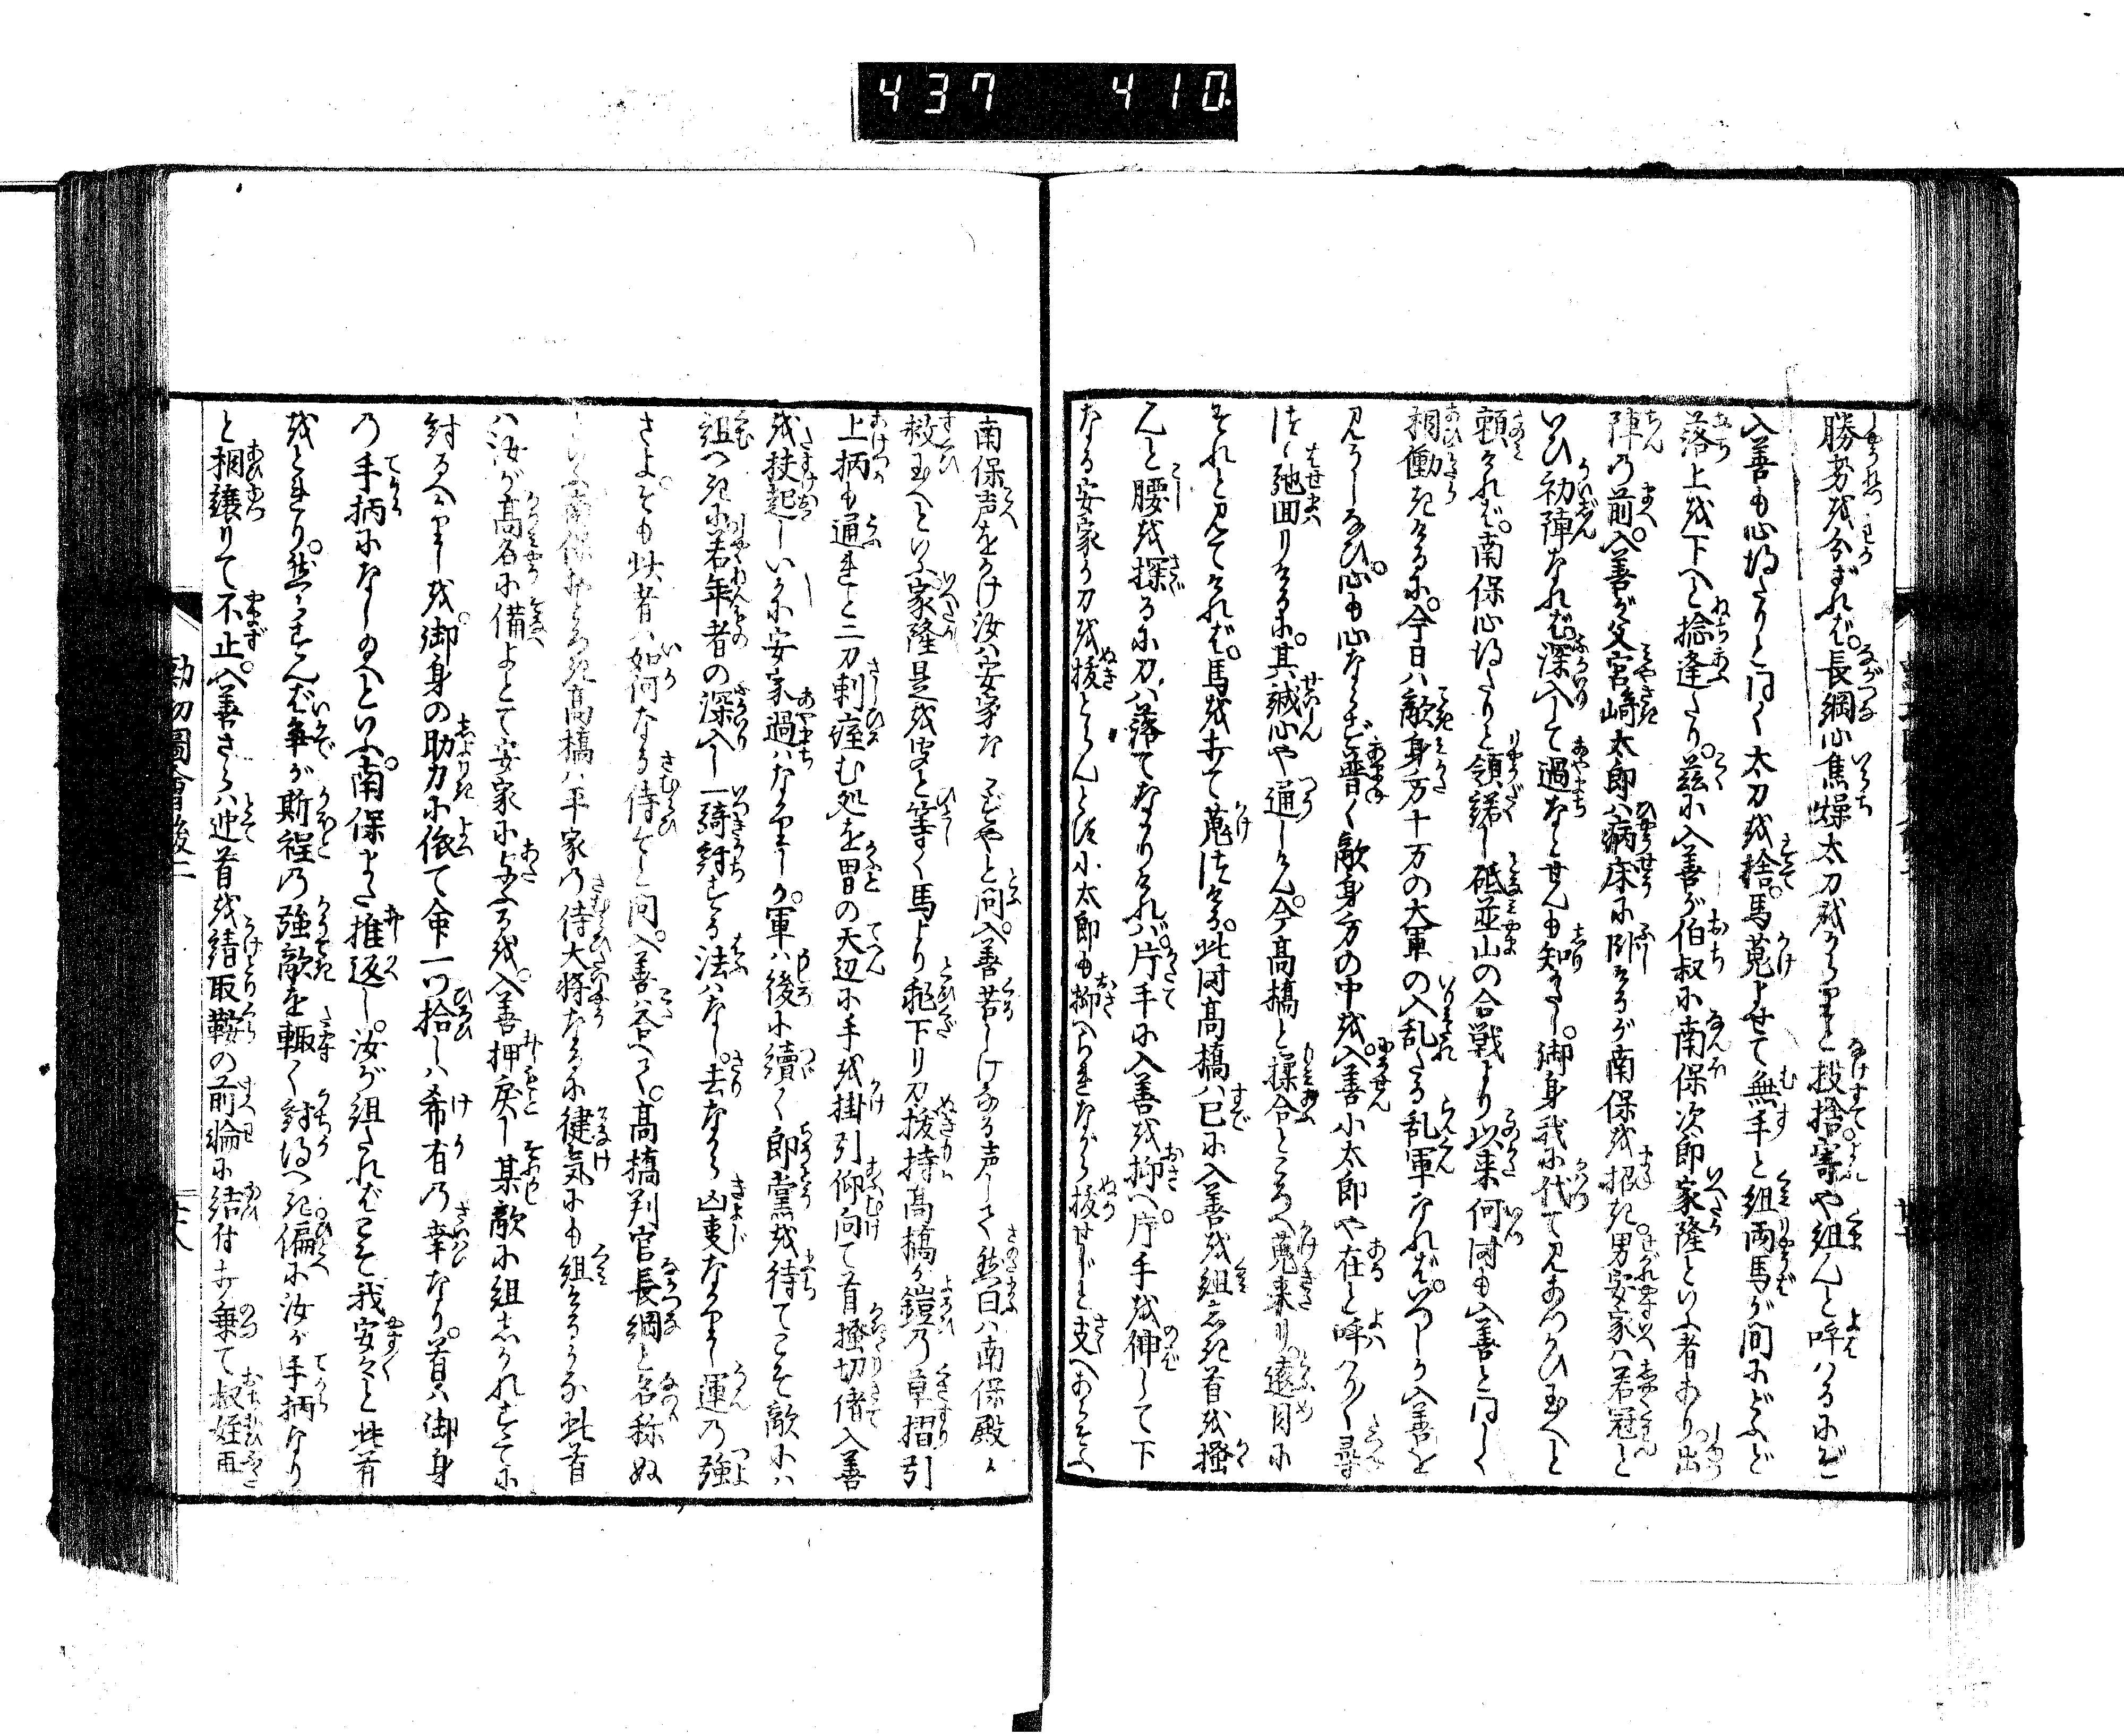 437 410
勝劣を分ざれば。長綱心焦燥太刀をからりと投捨寄や組んと呼はるにぞ
入善も心得たりと同く太刀を捨。馬蒐よせて無手と組両馬が間にどふど
落上を下へと捻逢たり。茲に入善が伯叔に南保次郎家隆といふ者あり出
陣の前入善が父宮崎太郎は病床に臥けるが南保を招き男安家は若冠と
いひ初陣なれば。深入して過なとせんも知がたし。御身我に代て見あつかひ玉へと
頼ければ。南保心得たりと領諾し砺並山の合戦より以来何時も入善と同く
相働きけるに。今日は敵身方十万の大軍の入乱たる乱軍なれば。いつしか入善を
見うしなひ。心も心ならず普く敵身方の中を。入善小太郎や在と呼はり〳〵尋
つゝ馳回りけるに。其誠心や通しけん。今高橋と揉合ところへ蒐来り。遠目に
それと見てければ。馬を赤て蒐つける。此時高橋は已に入善を組しき首を掻
んと腰を探るに刀は落てなかりければ。片手に入善を抑へ。片手を伸して下
なる安家が刀を抜とらんとす小太郎も抑へられながら抜せじと支へあらそふ
南保声をかけ汝は安家なるやと問。入善苦しげなる声して然曰は南保殿か
救玉へといふ家隆是を聞と等く馬より飛下り刀抜持高橋が鎧の草摺引
上柄も通れと二刀刺痓む処を冑の天辺に手を掛引仰向て首掻切偖入善
を扶起しいかに安家過はなかりしか。軍は後に續く郎黨を待てこそ敵には
組べきに若年者の深入し一綺討する法はなし。去ながら凶事なかりし運の強
さよ。そも此者は如何なる侍ぞと問。入善答へて。高橋判官長綱と名称ぬ
といふ南保聞て高橋は平家の侍大将なるに健気にも組けるかな此首
は汝が高名に備よとて安家に与ふるを。入善押戻し某敵に組しかれすでに
討るべかりしを。御身の助力に依て命一つ拾しは希有の幸なり。首は御身
の手柄になし玉へといふ。南保また推返し。汝が組たればこそ我安々と此首
をとれり。然らずんば争が斯程の強敵を輙く討得べき偏に汝が手柄なり
と相譲りて不止。入善さらば迚首を請取鞍の前輪に結付打乗て叔姪再